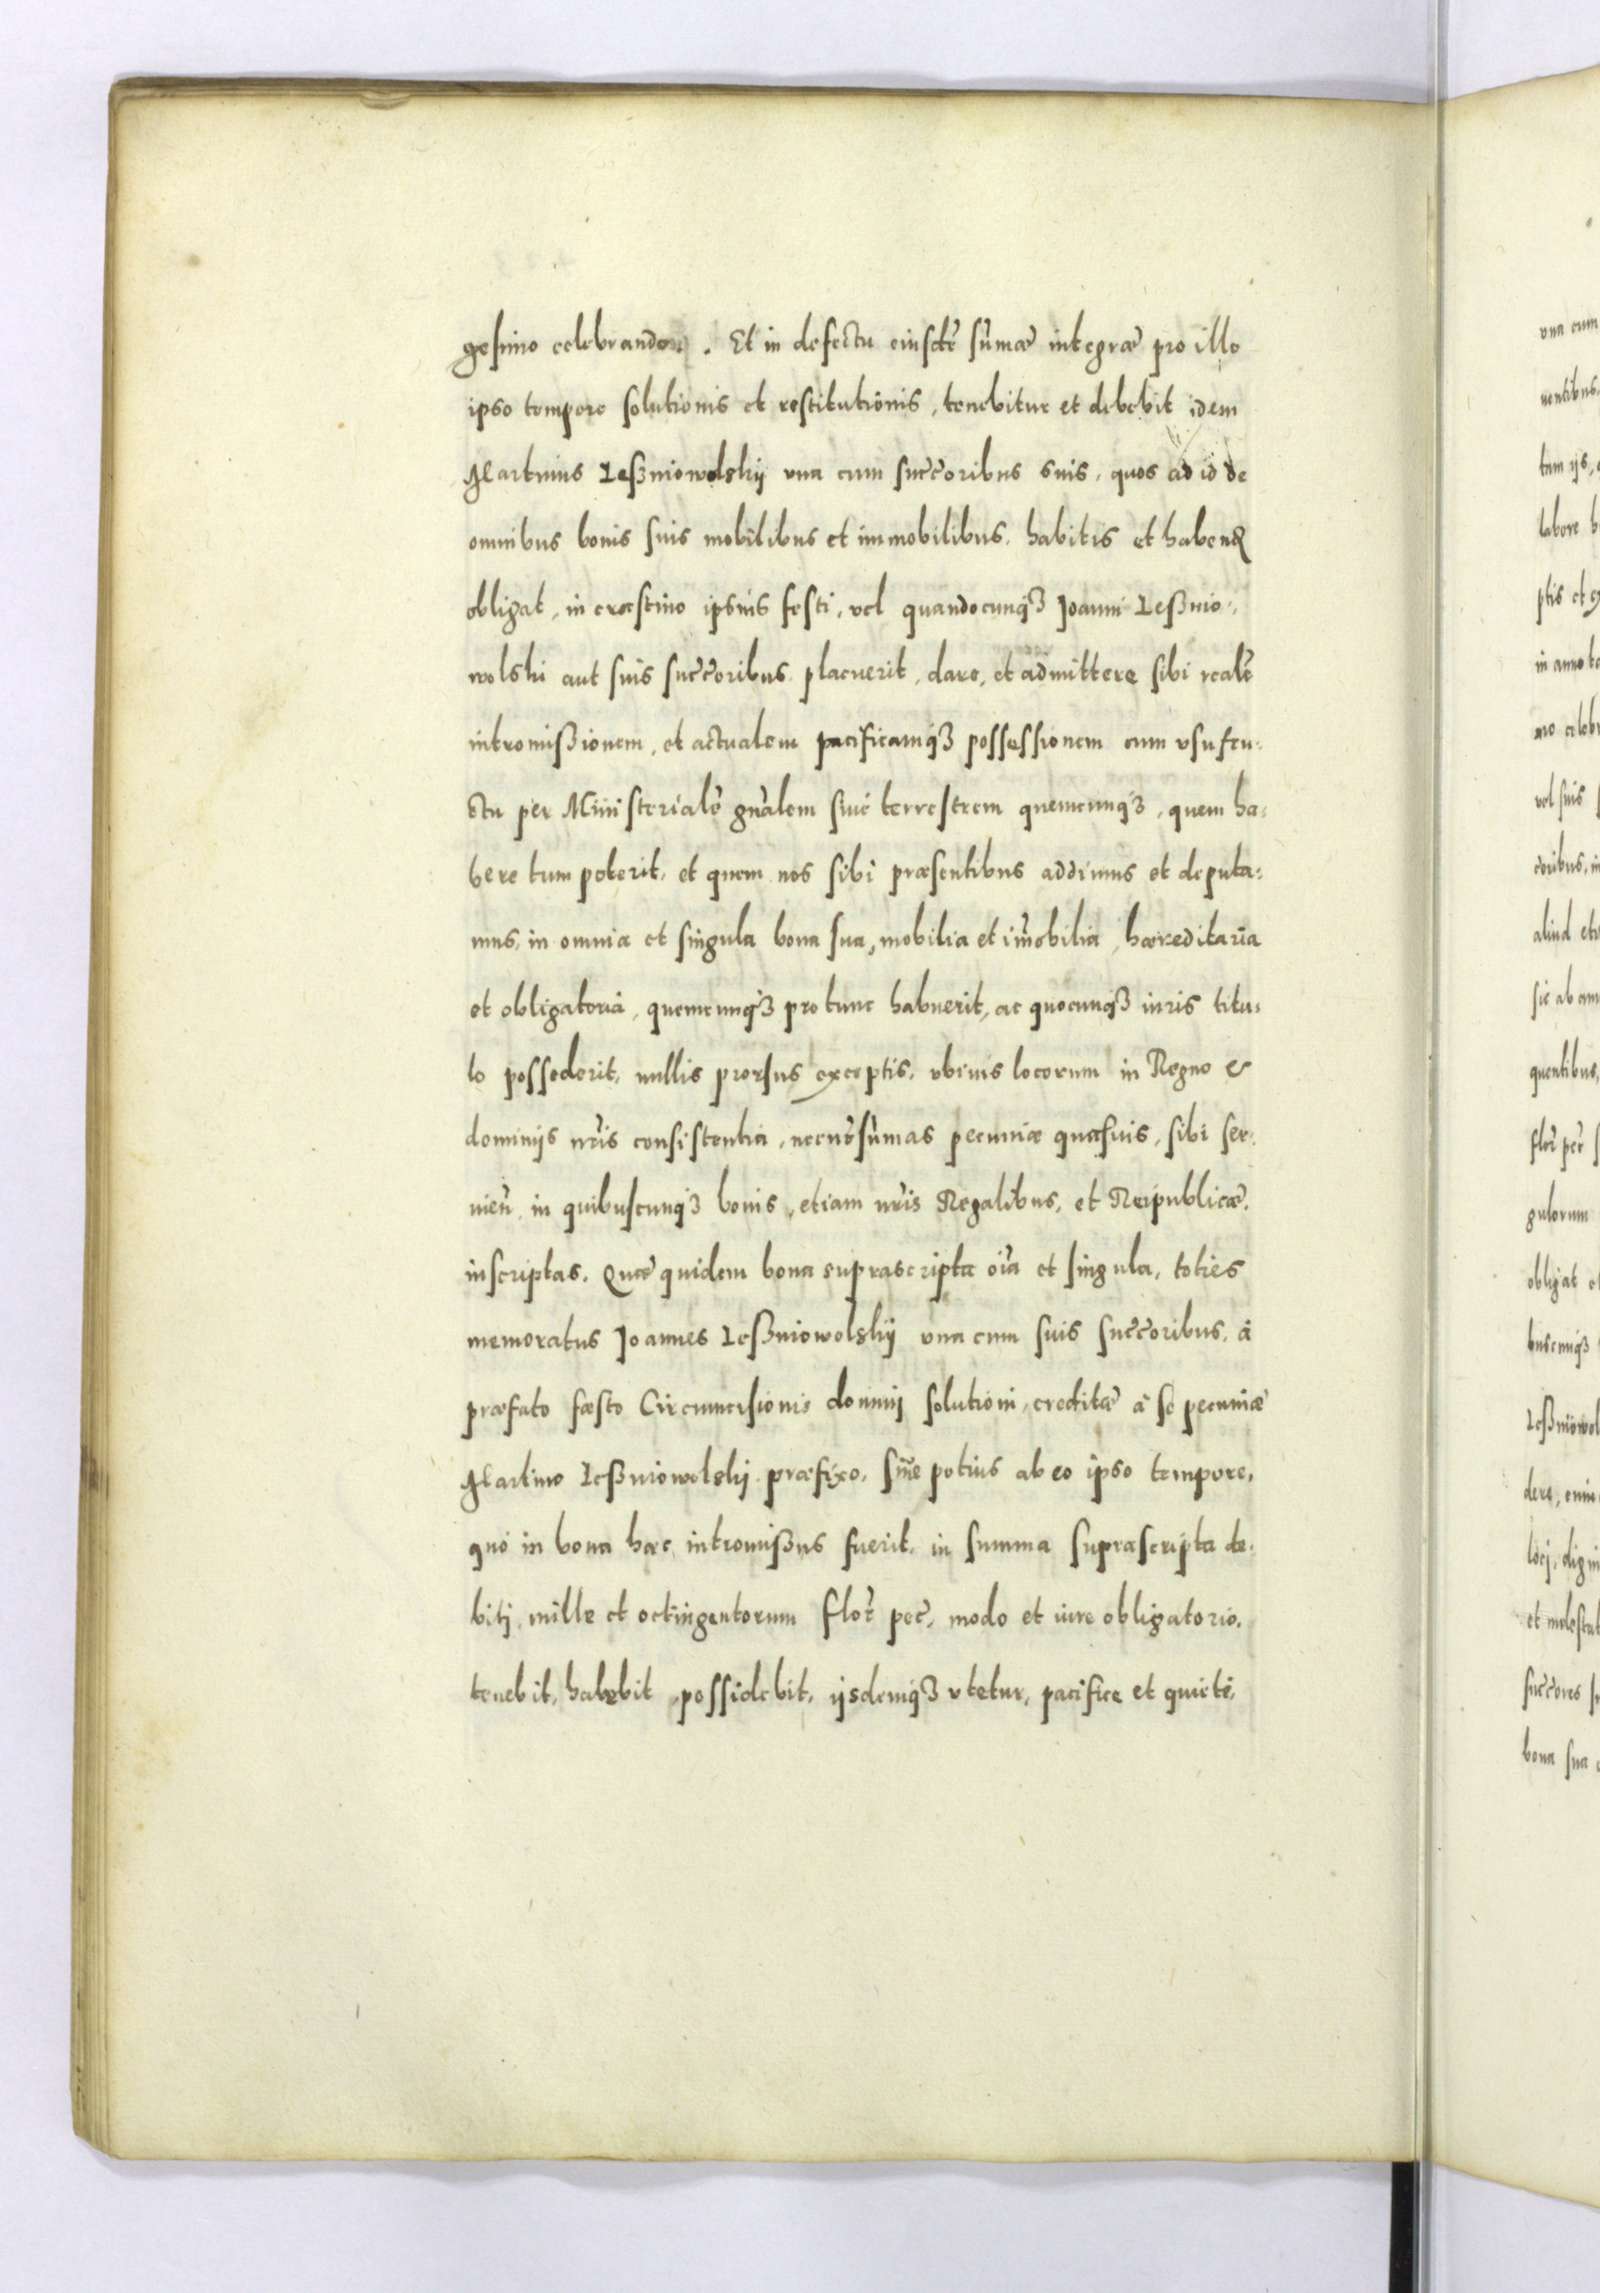 gesimo celebrandor. Et in defectu eiuscē sum̃æ integræ pro illo
ipso tempore solutionis et restitutionis, tenebitur et debebit idem
Martinus Leßniowolskij vna cum succ̃oribus suis, quos ad id de
omnibus bonis suis mobilibus et immobilibus, habitis et habenꝝ
obligat, in crastino ipsius festi, vel quandocunqꝫ Joanni Leßnio-
wolski aut suis succ̃oribus placuerit, dare, et admittere sibi realẽ
intromißionem, et actualem pacificamqꝫ possessionem cum vsufru-
ctu per Ministerialẽ gñalem siue terrestrem quemcunqꝫ, quem ha-
bere tum poterit, et quem nos sibi præsentibus addimus et deputa-
mus, in omnia et singula bona sua, mobilia et im̃obilia, hæreditaria
et obligatoria, quemcunqꝫ pro tunc habuerit, ac quocunqꝫ iuris titu-
lo possederit, nullis prorsus exceptis, vbiuis locorum in Regno &
dominijs nr̃is consistentia, necnõ sum̃as pecuniæ quasuis, sibi ser-
uieñ, in quibuscunqꝫ bonis, etiam nr̃is Regalibus, et Reipublicæ,
inscriptas. Quæ quidem bona suprascripta oĩa et singula, toties
memoratus Joannes Leßniowolskij vna cum suis succ̃oribus, à
præfato fæsto Circumcisionis domini solutioni, creditæ à se pecuniæ
Martino Leßniowolskij præfixo, siũe potius ab eo ipso tempore,
quo in bona hæc intromißus fuerit, in summa suprascripta de-
biti, mille et octingentorum flor̃ pec̃, modo et iure obligatorio,
tenebit, habebit, possidebit, ijsdemqꝫ vtetur, pacifice et quietè,
vna cum
uentibus,
tum ijs,
labore
ptis et
in anno
mo celeb
vel suis
coribus, in
aliud
sic ab
quentibus,
flor̃ pec̃
gulorum
obligat
buscunqꝫ
Leßniowol
dere,
loci, dign
et molesta
succ̃ores
bona sua